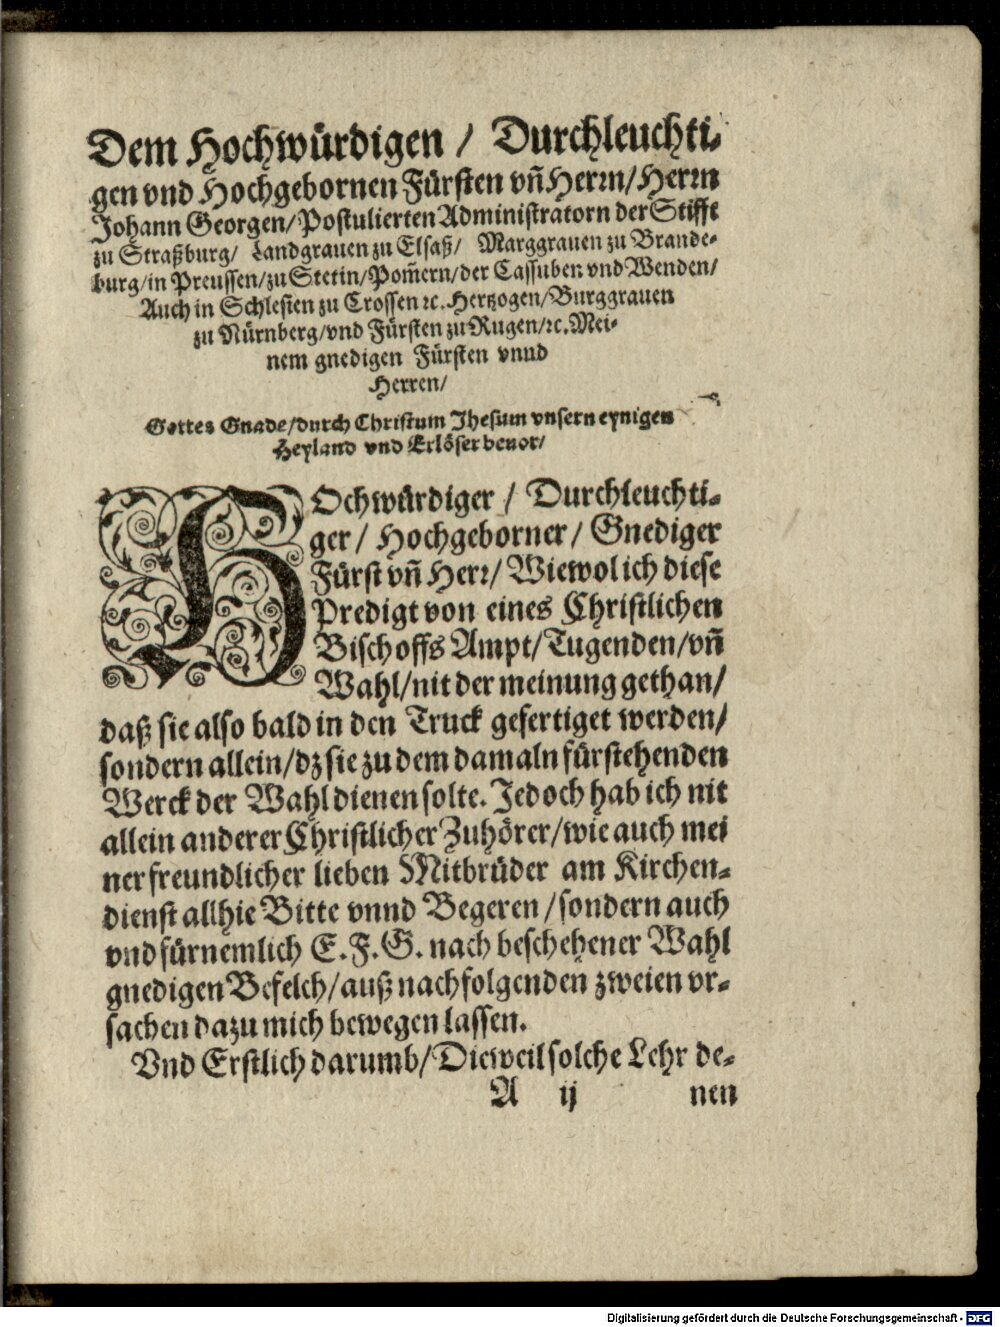 Dem Hochwürdigen / Durchleuchti-
gen vnd Hochgebornen Fürsten vñ Herrn/Herrn
Johann Georgen/Postulierten Administratorn der Stifft
zu Straßburg/ Landgrauen zu Elsaß/ Marggrauen zu Brande-
burg/in Preussen/zu Stetin/Pom̄ern/der Cassuben vnd Wenden/
Auch in Schlesien zu Crossen ꝛc. Hertzogen/Burggrauen
zu Nürnberg/vnd Fürsten zu Rugen/ꝛc. Mei-
nem gnedigen Fürsten vnnd
Herren/
Gottes Gnade/durch Christum Jhesum vnsern eynigen
Heyland vnd Erlöser beuor/
HOchwürdiger / Durchleuchti-
ger / Hochgeborner / Gnediger
Fürst vñ Herr/ Wiewol ich diese
Predigt von eines Christlichen
Bischoffs Ampt/Tugenden/vñ
Wahl/nit der meinung gethan/
daß sie also bald in den Truck gefertiget werden/
sondern allein/dz sie zu dem damaln fürstehenden
Werck der Wahl dienen solte. Jedoch hab ich nit
allein anderer Christlicher Zuhörer/wie auch mei
ner freundlicher lieben Mitbrüder am Kirchen-
dienst allhie Bitte vnnd Begeren/sondern auch
vnd fürnemlich E. F. G. nach beschehener Wahl
gnedigen Befelch/auß nachfolgenden zweien vr-
sachen dazu mich bewegen lassen.
Vnd Erstlich darumb/Dieweil solche Lehr de-
A ij nen
Digitalisierung gefördert durch die Deutsche Forschungsgemeinschaft - DFG